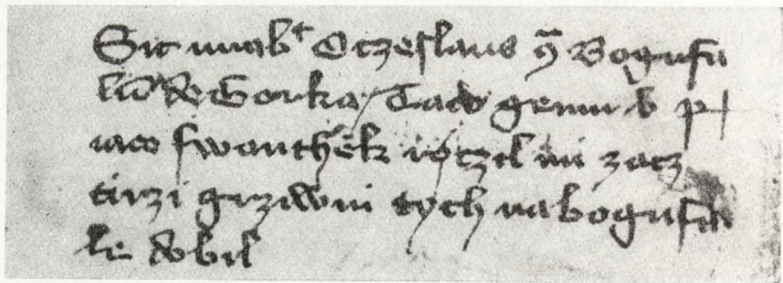 Sic iurab't Oczeslaus ꝯ Bogufa
lū de Gorka Taco gemu b p
iaco swanthek ręczil mi zacz
tirzi grziwni tych na bogufa
le dobil